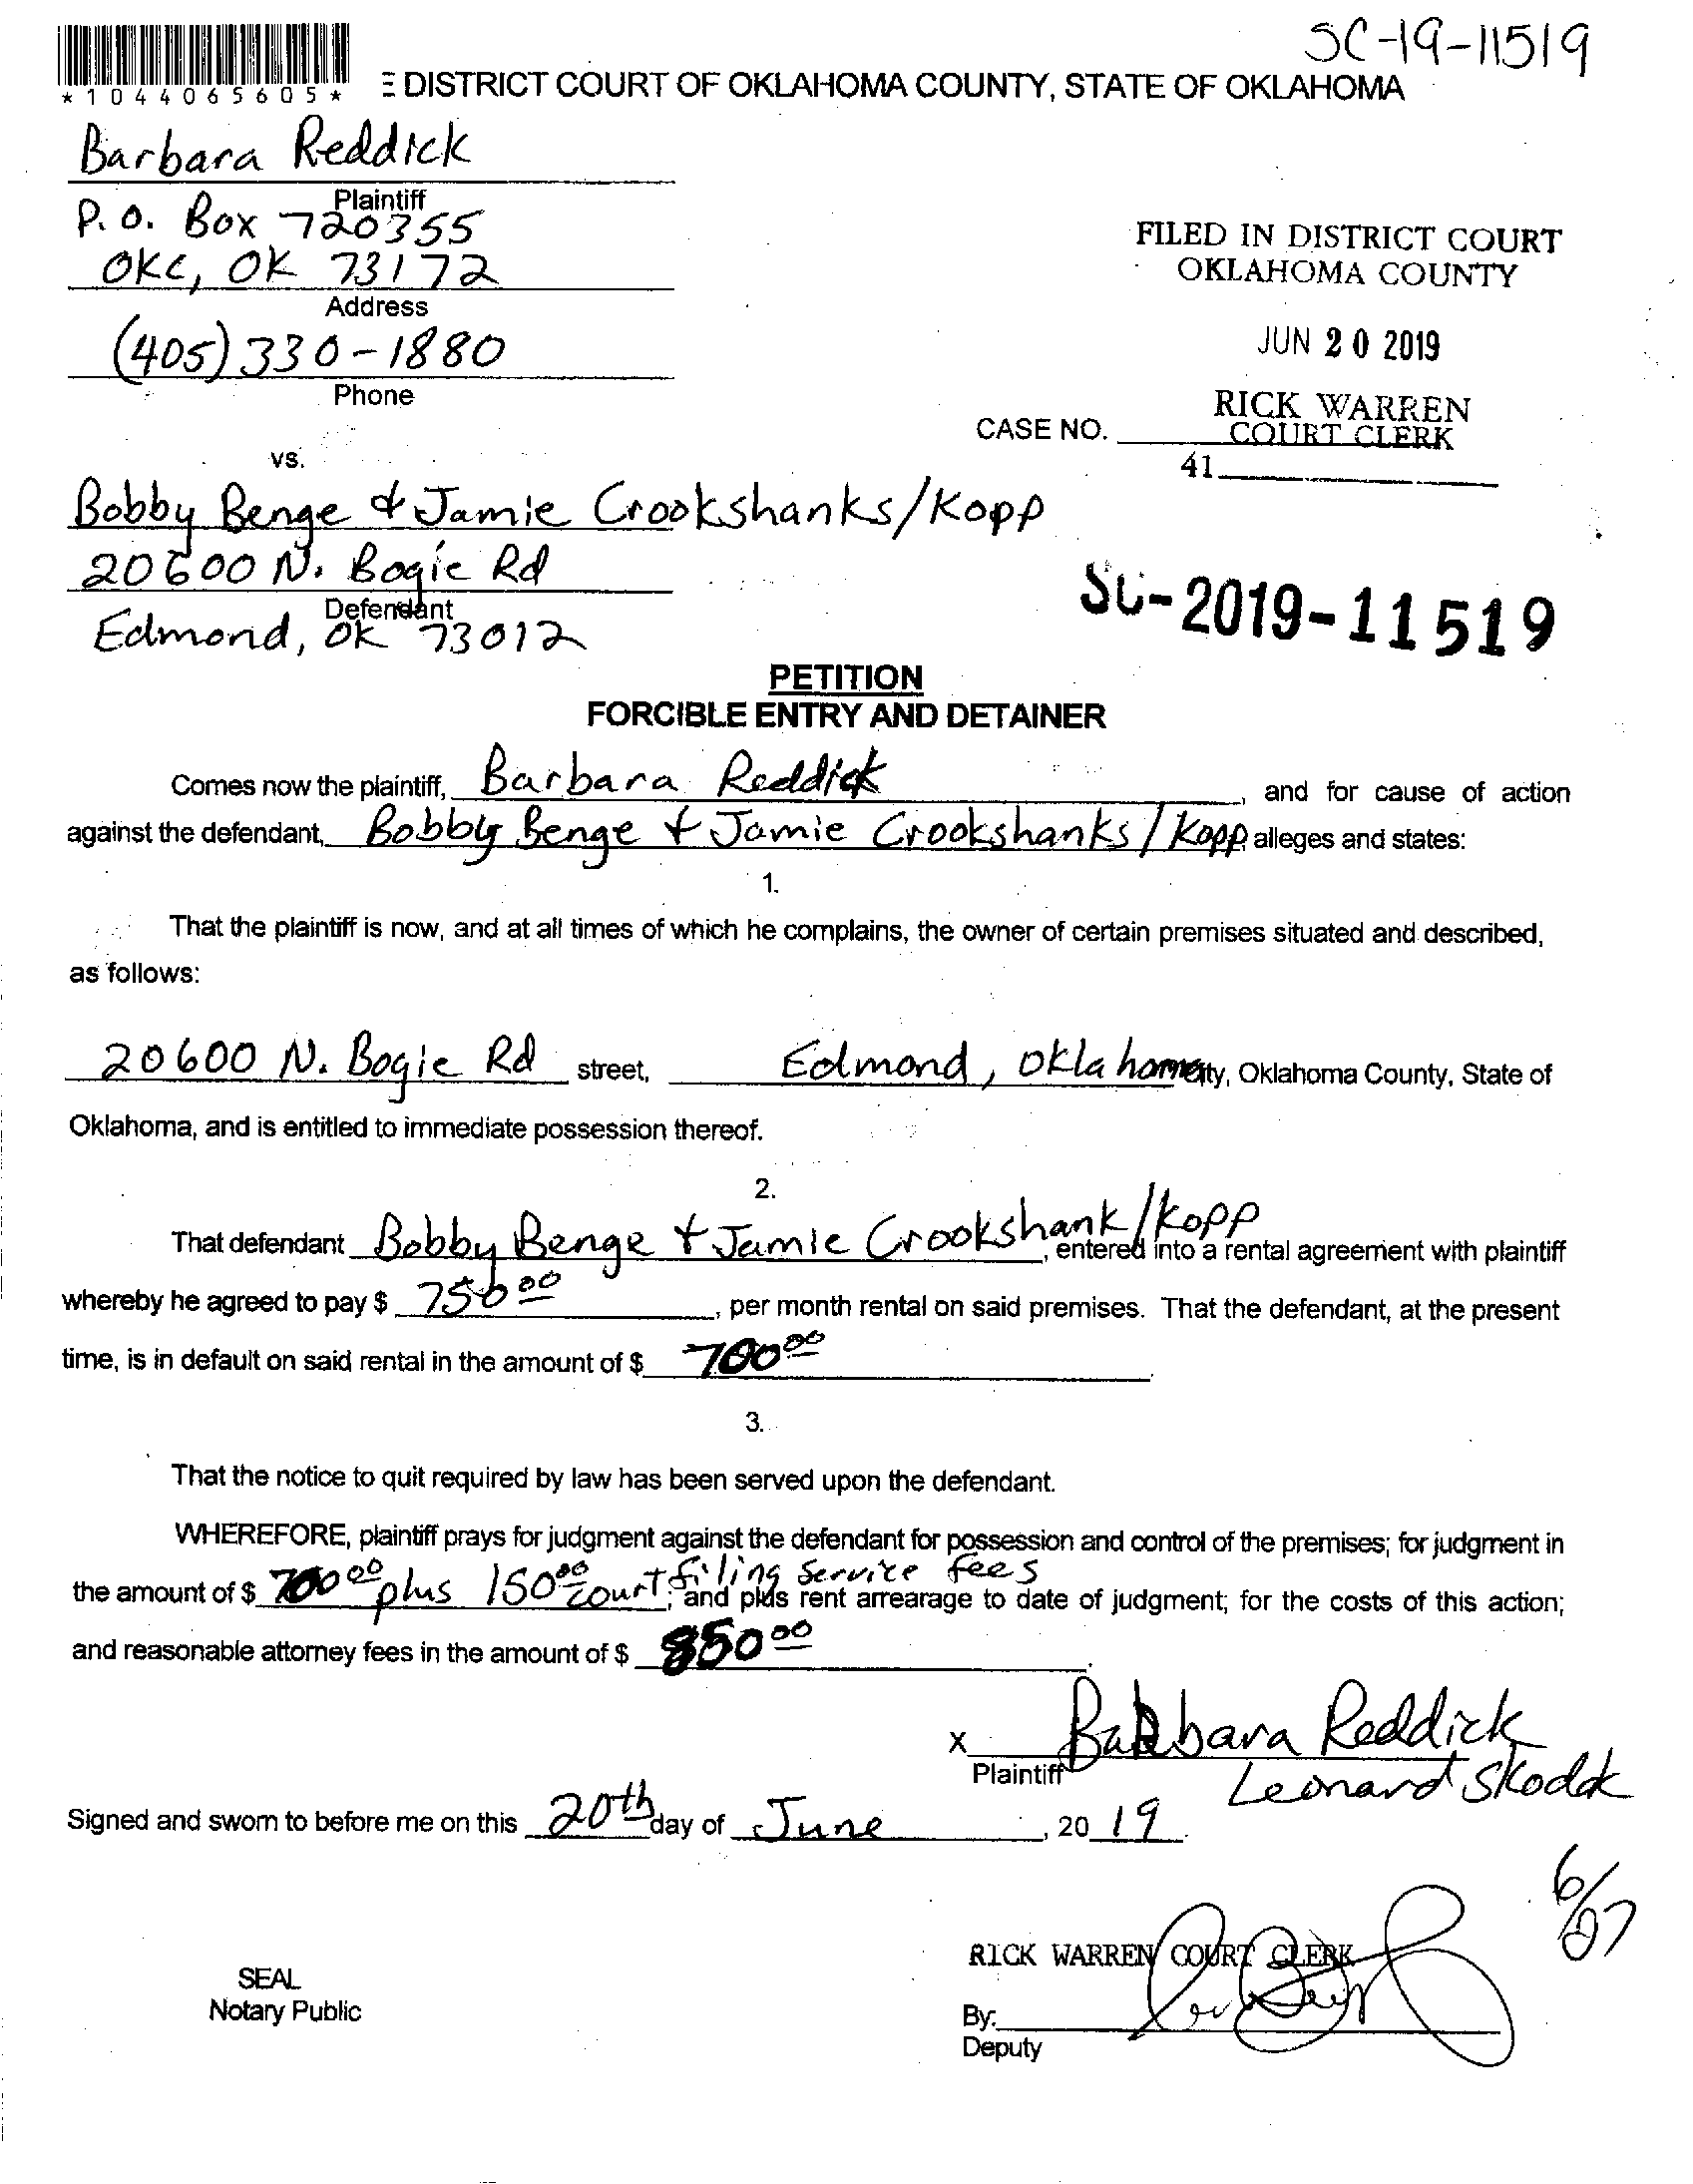 SC-19-11519
*1044065605*
E DISTRICT COURT OF OKLAHOMA COUNTY, STATE OF OKLAHOMA
Barbara Reddick
Plaintiff
P.O. Box 720355
OKC, OK 73172
Address
(405) 330-1880
Phone
FILED IN DISTRICT COURT
OKLAHOMA COUNTY
JUN 20 2019
RICK WARREN
COURT CLERK
41
CASE NO.
vs.
Bobby Benge & Jamie Crookshanks/Kopp
20600 N. Bogie Rd
Defendant
Edmond, OK 73012
SC-2019-11519
PETITION
FORCIBLE ENTRY AND DETAINER
Comes now the plaintiff, Barbara Reddick, and for cause of action
against the defendant, Bobby Benge & Jamie Crookshanks/Kopp alleges and states:
1.
That the plaintiff is now, and at all times of which he complains, the owner of certain premises situated and described,
as follows:
20600 N. Bogie Rd street, Edmond, Oklahoma City, Oklahoma County, State of
Oklahoma, and is entitled to immediate possession thereof.
2.
That defendant Bobby Benge & Jamie Crookshank/Kopp, entered into a rental agreement with plaintiff
whereby he agreed to pay $ 750.00, per month rental on said premises. That the defendant, at the present
time, is in default on said rental in the amount of $ 700.00.
3.
That the notice to quit required by law has been served upon the defendant.
WHEREFORE, plaintiff prays for judgment against the defendant for possession and control of the premises; for judgment in
the amount of $ 700.00 plus 150.00 court filing service fees; and plus rent arrearage to date of judgment; for the costs of this action;
and reasonable attorney fees in the amount of $ 850.00.
X Barbara Reddick
Plaintiff
Leonard
Signed and sworn to before me on this 20th day of June, 2019.
6/27
RICK WARREN COURT CLERK
SEAL
Notary Public
By:
Deputy